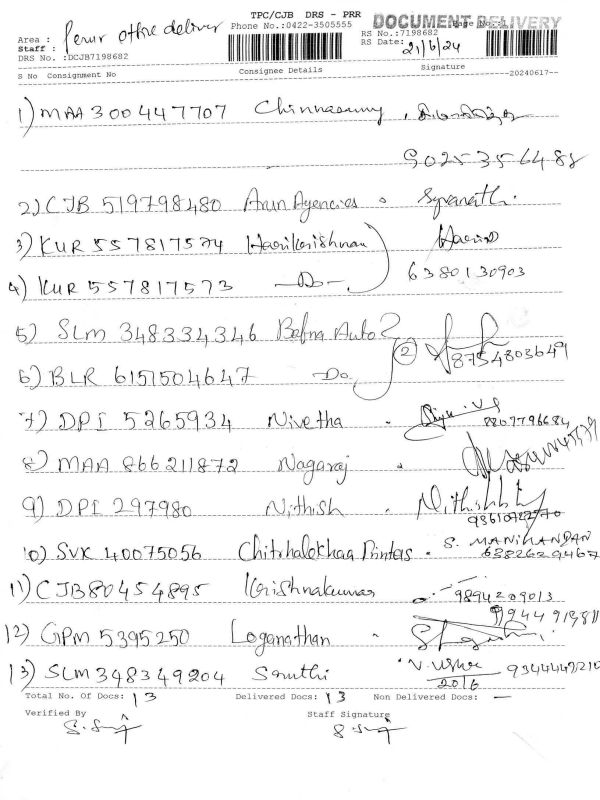 TPC/CJB DRS - PRR
DOCUMENT DELIVERY
Area : Perur office deliver
Phone No.:0422-3505555
Page No.:1
Staff :
RS No.:7198682
DRS No. :DCJB7198682
RS Date: 21/6/24
S No Consignment No Consignee Details Signature
--20240617--
1) MAA 300447707 Chinnasamy
9025356488
2) CJB 519798480 Arun Agencies
3) KUR 557817574 Harikrishnan
4) KUR 557817573 -Do- 6380130903
5) SLM 348334346 Bafna Auto
6) BLR 6151504647 Do. 2 8754803649
7) DPI 5265934 Nivetha
8) MAA 866211872 Nagaraj
9) DPI 297980 Nithish
10) SVK 40075056 S. MANIKANDAN
6382629467
11) CJB80454895 Krishnakumar 9894209013
12) GPM 5395250 Loganathan
13) SLM 348349204 9344442210
Total No. Of Docs: 13 Delivered Docs: 13 Non Delivered Docs: —
Verified By Staff Signature